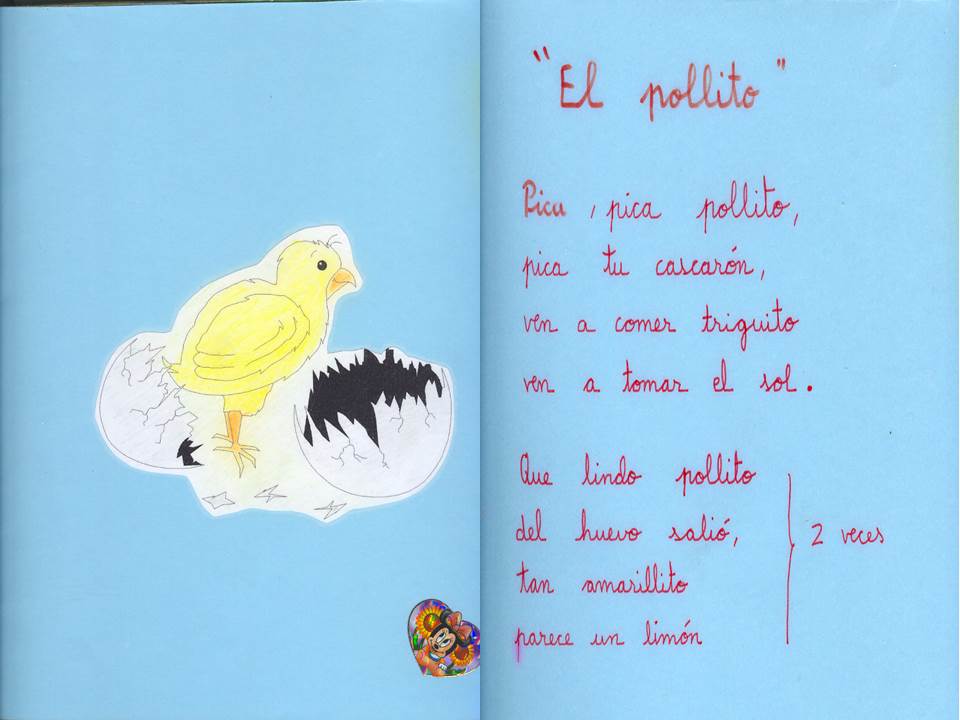 "El pollito"
Pica, pica pollito,
pica tu cascarón,
ven a comer triguito
ven a tomar el sol.
Que lindo pollito
del huevo salió,
tan amarillito
parece un limón
2 veces